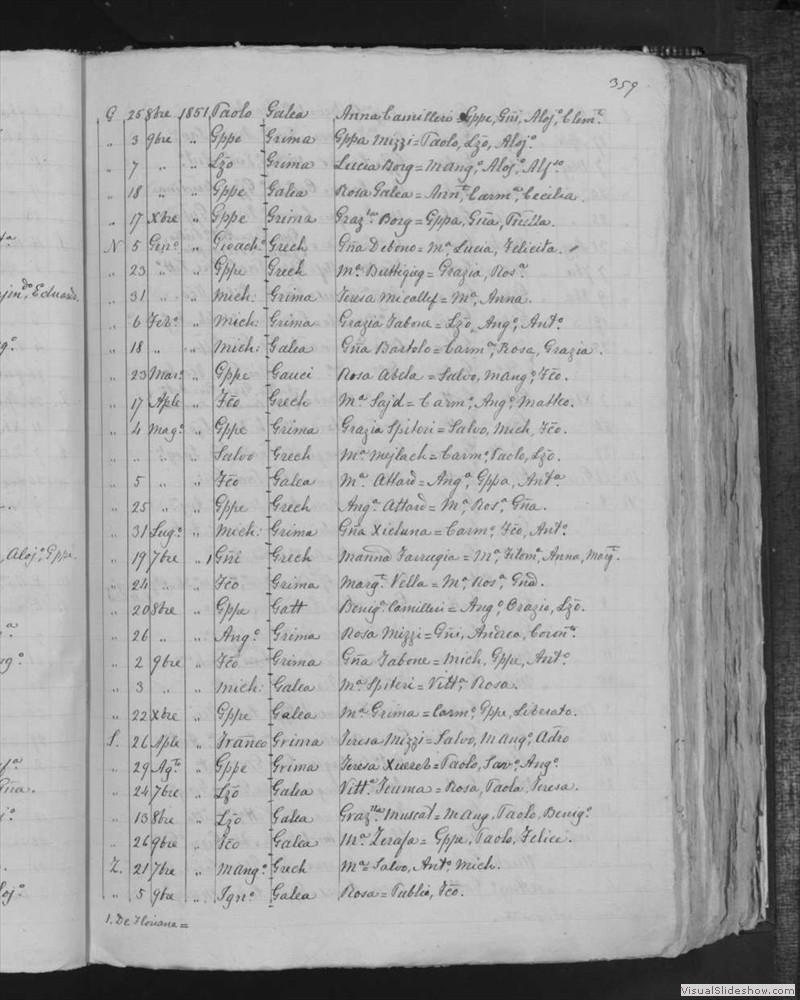 359
G 25 8bre 1851 Paolo Galea Anna Camilleri = Gppe, Gñi, Aloj.º Clem.e
" 3 9bre " Gppe Grima Gppa Mizzi = Paolo, Lzõ, Aloj.º
" 7 " " Lzõ Grima Lucia Borg = Mang.º Aloj.º Alf.so
" 18 " " Gppe Galea Rosa Galea = Ann.ta Carm.a Cecilia.
" 17 Xbre " Gppe Grima Graz.lla Borg = Gppa, Gña,
N 5 Gen.º " Gioach.º Grech Gña Debono = M.a Lucia, Felicita.
" 23 " " Gppe Grech M.a Buttigieg = Grazia, Ros.a
" 31 " " Mich: Grima Teresa Micallef = M.a Anna.
" 6 Feb.º " Mich: Grima Grazia Tabone = Lzõ, Ang.º, Ant.º
" 18 " " Mich: Galea Gña Bartolo = Carm.a, Rosa, Grazia.
" 23 Mar.º " Gppe Gauci Rosa Abela = Salvo, Mang.º, Fcõ.
" 17 Aple " Fcõ Grech M.a Sajd = Carm.º, Ang.º, Matteo.
" 4 Mag.º " Gppe Grima Grazia Spiteri = Salvo, Mich, Fcõ.
" " " " Salvo Grech M.a Mejlach = Carm.º, Paolo, Lzõ.
" 5 " " Fcõ Galea M.a Attard = Ang.a, Gppa, Ant.a
" 25 " " Gppe Grech Ang.a Attard = M.a, Ros.a, Gña.
" 31 Lug.º " Mich: Grima Gña Xicluna = Carm.º, Fcõ, Ant.º
" 19 7bre " 1 Gñi Grech Marina Farrugia = M.a, Filom.a, Anna, Marg.ta
" 24 " " Fcõ Grima Marg.ta Vella = M.a, Ros.a, Gña.
" 20 8bre " Gppe Gatt Benig.a Camilleri = Ang.º, Orazio, Lzõ.
" 26 " " Ang.º Grima Rosa Mizzi = Gñi, Andrea, Coron.to
" 2 9bre " Fcõ Grima Gña Tabone = Mich, Gppe, Ant.º
" 3 " " Mich: Galea M.a Spiteri = Vitt.a, Rosa.
" 22 Xbre " Gppe Galea M.a Grima = Carm.º, Gppe, Liberato.
S. 26 Aple " Franco Grima Teresa Mizzi = Salvo, Mang.º, Adeo
" 29 Ag.to " Gppe Grima Teresa Xuereb = Paolo, Sav.º, Ang.º
" 24 7bre " Lzõ Galea Vitt.a Teuma = Rosa, Paola, Teresa.
" 13 8bre " Lzõ Galea Graz.lla Muscat = Mang, Paolo, Benig.º
" 26 9bre " Fcõ Galea M.a Zerafa = Gppe, Paolo, Felice.
Z. 21 7bre " Mang.º Grech M.a = Salvo, Ant.º, Mich.
" 5 9bre " Ign.º Galea Rosa = Publio, Fcõ.
1. De Floriana =
Eduardo.
Aloj.º, Gppe.
VisualSlideshow.com